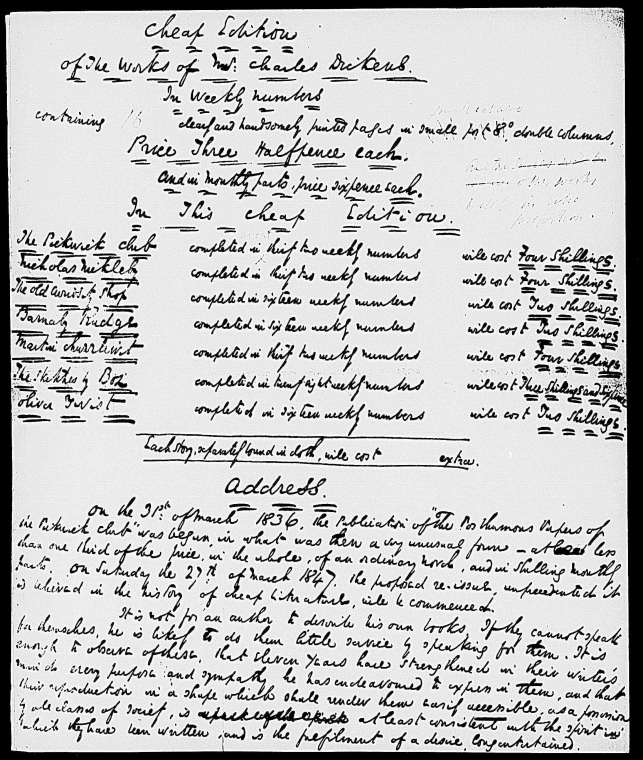 Cheap Edition
of The Works of Mr. Charles Dickens.
In Weekly Numbers
containing 16 clear and handsomely printed pages in small post 8o. double columns,
Price Three Halfpence each.
And in monthly parts, price sixpence each.
In This Cheap Edition.
The Pickwick Club completed in thirty two weekly numbers will cost Four Shillings.
Nicholas Nickleby completed in thirty two weekly numbers will cost Four Shillings.
The Old Curiosity Shop completed in sixteen weekly numbers will cost Two Shillings.
Barnaby Rudge completed in sixteen weekly numbers will cost Two Shillings.
Martin Chuzzlewit completed in thirty two weekly numbers will cost Four Shillings
The Sketches by Boz completed in twenty eight weekly numbers will cost Three Shillings and Sixpence
Oliver Twist completed in sixteen weekly numbers will cost Two Shillings.
Each story, separately bound in cloth, will cost extra.
Address.
On the 31st. of March 1836, the Publication of "The Posthumous Papers of
the Pickwick Club" was begun, in what was then a very unusual form – at less
than one third of the price, in the whole, of an ordinary novel, and in shilling monthly
parts. On Saturday the 27th. of March 1847, the proposed re-issue, unprecedented it
is believed in the history of Cheap Literature, will be commenced.
It is not for an author to describe his own books. If they cannot speak
for themselves, he is likely to do them little service by speaking for them. It is
enough to observe of these, that eleven years have strengthened in their writer's
mind every purpose and sympathy he has endeavoured to express in them, and that
their reproduction in a shape which shall render them easily accessible, as a possession
by all classes of society, is at least consistent with the spirit in
which they have been written, and is the fulfilment of a desire, long entertained.